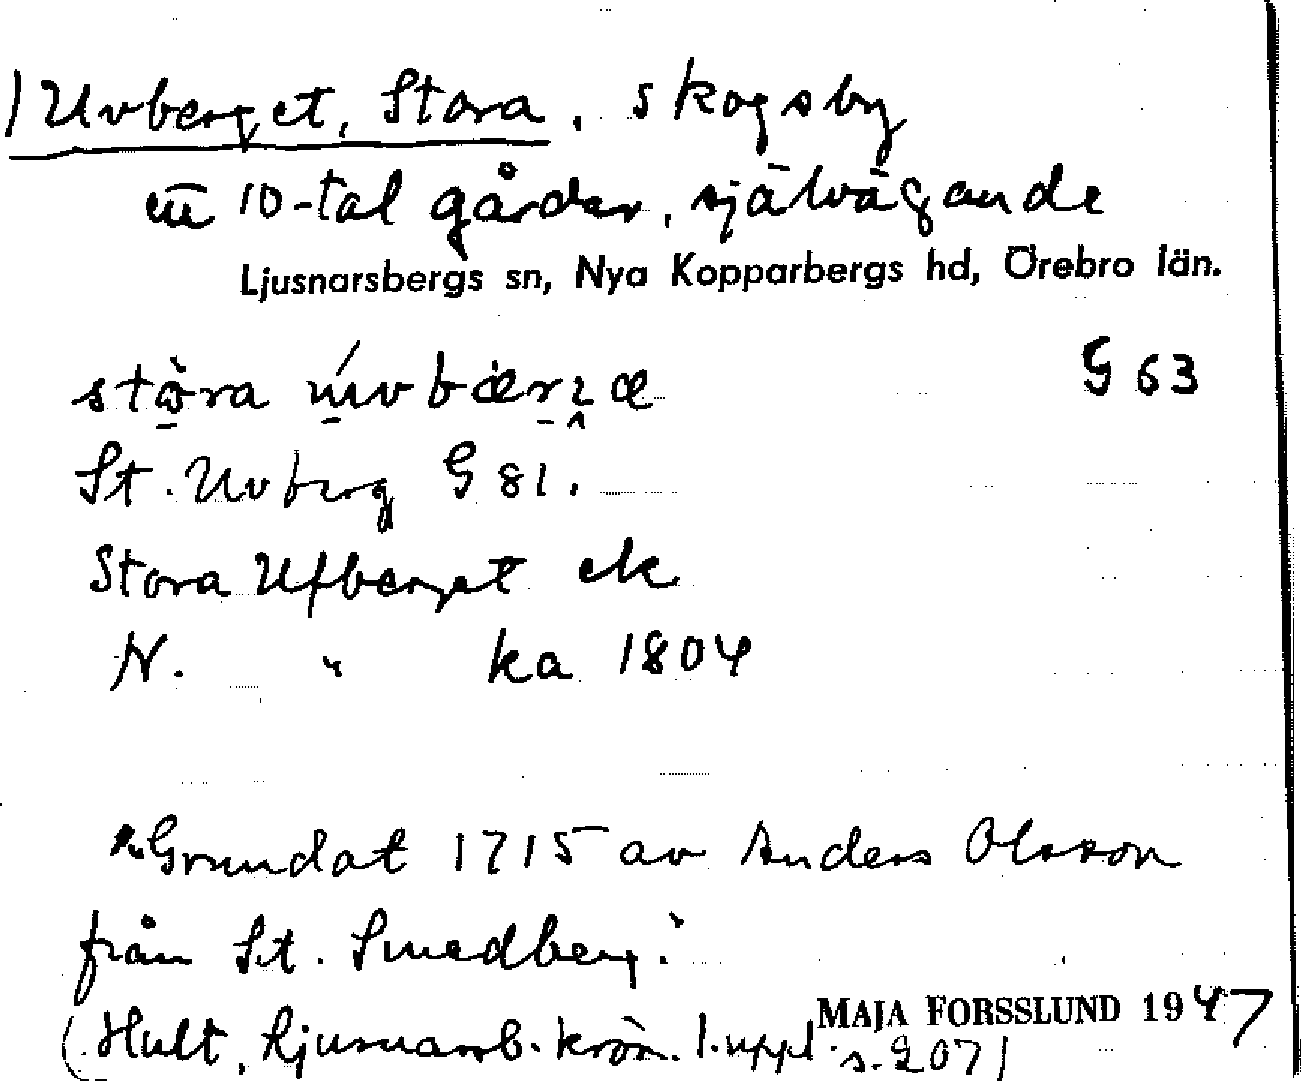 1) Uvberget, Stora, skogsby
ett 10-tal gårdar, självägande
Ljusnarsbergs sn, Nya Kopparbergs hd, Örebro län.
G 63
St. Uvberg G 81.
Stora Ufberget ek
N. " ka 1804
"Grundat 1715 av Anders Olsson
från St. Smedberg."
(Hult, Ljusnarsb. krön. 1. uppl. s. 207)
MAJA FORSSLUND 1947